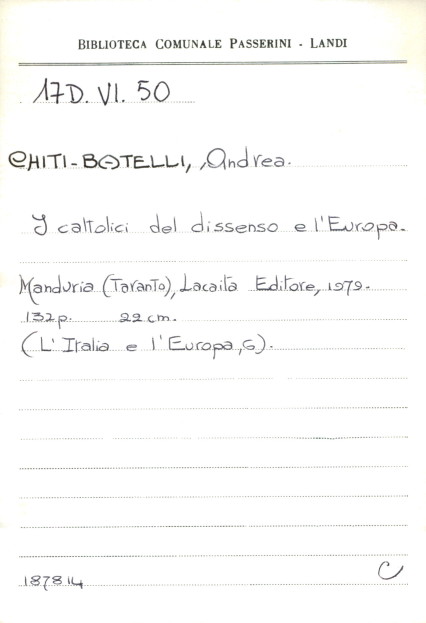 BIBLIOTECA COMUNALE PASSERINI - LANDI
17D. VI. 50
CHITI-BATELLI, Andrea.
I cattolici del dissenso e l'Europa.
Manduria (Taranto), Lacaita Editore, 1979.
132p. 22 cm.
(L'Italia e l'Europa, 6).
187814
C